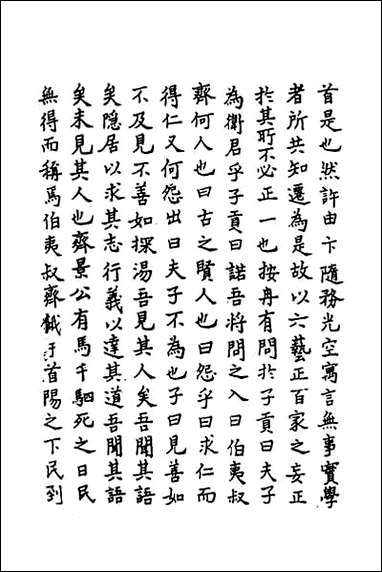 首是也然許由卞隨務光空寓言無事實學
者所共知遷為是故以六藝正百家之妄正
於其所不必正一也按冉有問於子貢曰夫子
為衛君乎子貢曰諾吾將問之入曰伯夷叔
齊何人也曰古之賢人也曰怨乎曰求仁而
得仁又何怨出曰夫子不為也子曰見善如
不及見不善如探湯吾見其人矣吾聞其語
矣隱居以求其志行義以達其道吾聞其語
矣未見其人也齊景公有馬千駟死之日民
無得而稱焉伯夷叔齊餓于首陽之下民到